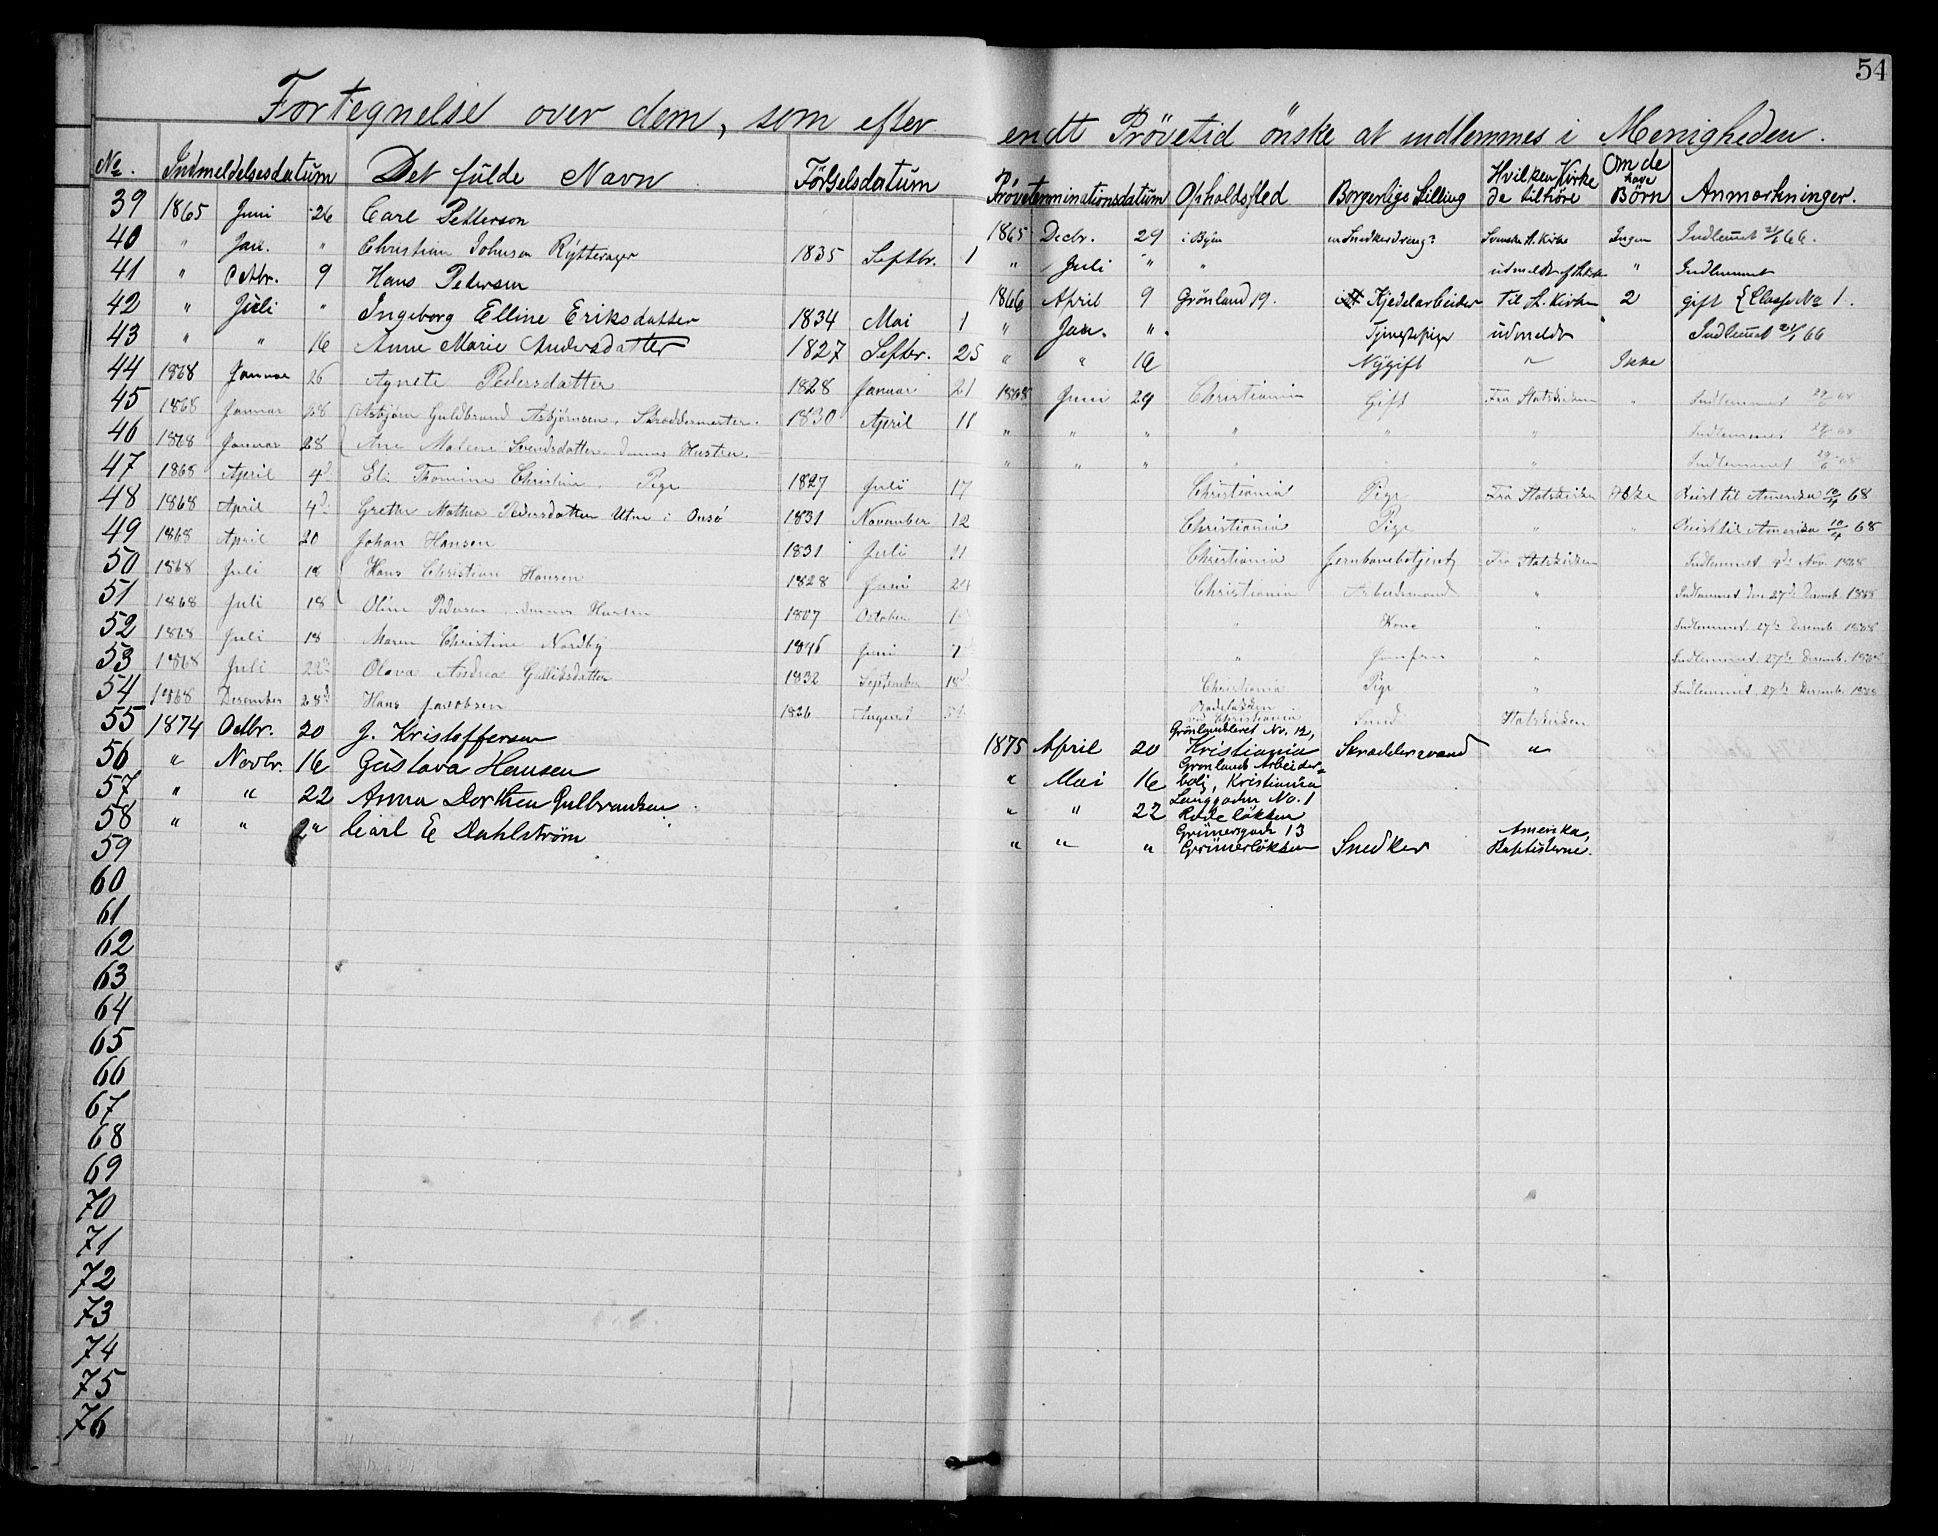 54
Fortegnelse over dem, som efter endt Prövetid önske at indlemmes i Menigheden.
No. Indmeldelsesdatum Det fulde Navn Förselsdatum Pröveterminationsdatum Opholdssted Borgerlige Stilling Hvilken Kirke de tilhöre Om de have Börn Anmærkninger.
39 1865 Juni 26 Carl Petterson 1865 Decbr. 29 i Byen Svenske St. Kirke Ingen Indlemmet 21/1 66.
40 " Jan. " Christian Johnsen Rytterager 1835 Septbr. 1 " Juli " " udmeldt af St.kirke " Indlemmet
41 " Octbr. 9 Hans Pedersen 1866 April 9 Grönland 19. Kjedelarbeider til St. Kirken 2 gift { Classe No 1.
42 " Juli " Ingeborg Elline Eriksdatter 1834 Mai 1 " Jan. " Tjenestepige udmeldt Indlemmet 21/1 66
43 " " 16 Anne Marie Andersdatter 1827 Septbr. 25 " " 16 Nygift " Ikke
44 1868 Januar 26 Agnete Pedersdatter 1828 Januar 21 1868 Juni 29 Christiania Gift Fra Statskirken " Indlemmet 29/6 68
45 1868 Januar 28 Asbjörn Guldbrand Asbjörnsen, Skræddermester. 1830 April 11 " " " " " " Indlemmet 29/6 68
46 1868 Januar 28 Ane Malene Svendsdatter, dennes Hustru. " " " " " Indlemmet 29/6 68
47 1868 April 4d Eli Thomine Christine, Pige 1827 Juli 17 Christiania Pige Fra Statskirken Ikke Reist til Amerika 10/4 68
48 1868 April 4d Grethe Mathea Pedersdatter Utne i Onsö 1831 November 12 Christiania Pige " " Reist til Amerika 10/4 68
49 1868 April 20 Johan Hansen 1831 Juli 21 Christiania Jernbanebetjent Fra Statskirken Indlemmet Nov. 1868
50 1868 Juli 18 Hans Christian Hansen 1828 Juni 24 Christiania Arbeidsmand " Indlemmet den 27de Decemb. 1868
51 1868 Juli 18 Oline Pedersen, dennes Hustru 1807 October " Kone " Indlemmet 27de Decemb. 1868
52 1868 Juli 18 Maren Christine Nordby 1846 Juni 7 " Jomfru " Indlemmet 27de Decemb. 1868
53 1868 Juli 22 Olava Andrea Gulliksdatter 1832 September 18d Christiania Pige " Indlemmet 27de Decemb. 1868
54 1868 Desember 28d Hans Jacobsen 1826 August Rodeløkken ved Christiania Smed Statskirken
55 1874 Octbr. 20 J. Kristoffersen 1875 April 20 Grönlandsleret No. 12, Kristiania Skræddersvend "
56 " Novbr. 16 Gustava Hansen " Mai 16 Grønlands Arbeiderbolig, Kristiania
57 " " 22 Anna Dorthea Gulbrandsen " " 22 Langgaden No. 1 Rodeløkken
58 " " 2" Carl E Dahlstrøm " " " Grünersgade 13 Grünerløkken Snedker Amerika, Baptisterne.
59
60
61
62
63
64
65
66
67
68
69
70
71
72
73
74
75
76